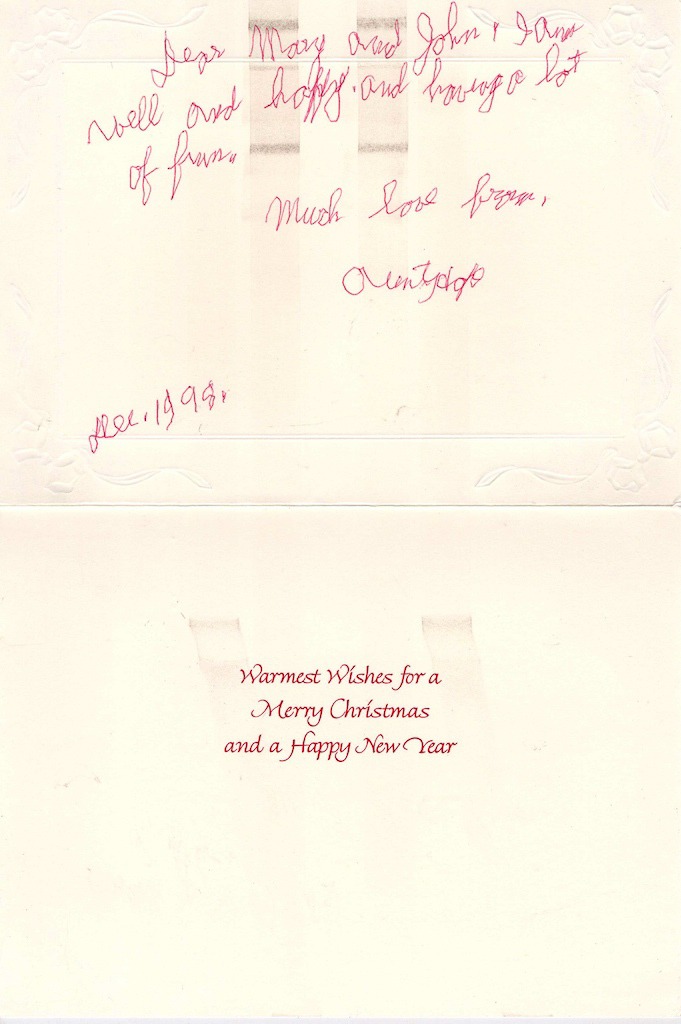 Dear Mary and John, I am
well and happy. and having a lot
of fun.
Much love from,
Aunty
Dec. 1998.
Warmest Wishes for a
Merry Christmas
and a Happy New Year